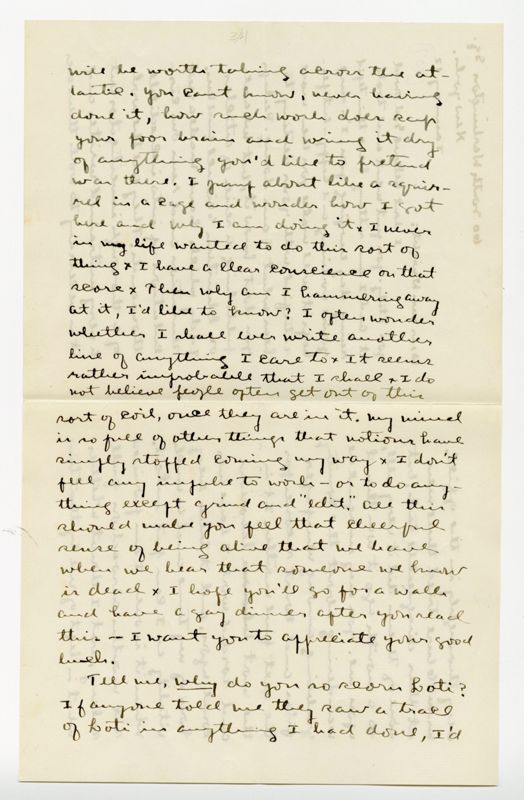 will be worth taking across the at-
lantic. You can't know, never having
done it, how such work does sap
your poor brain and wring it dry
of anything you'd like to pretend
was there. I jump about like a squir-
rel in a cage and wonder how I got
here and why I am doing it x I never
in my life wanted to do this sort of
thing x I have a clear conscience on that
score x Then why am I hammering away
at it, I'd like to know? I often wonder
whether I shall ever write another
line of anything I care to x It seems
rather improbable that I shall x I do
not believe people often get out of this
sort of coil, once they are in it. My mind
is so full of other things that notions have
simply stopped coming my way x I don't
feel any impulse to work — or to do any-
thing except grind and "edit." All this
should make you feel that cheerful
sense of being alive that we have
when we hear that someone we know
is dead x I hope you'll go for a walk
and have a gay dinner after you read
this — I want you to appreciate your good
luck.
Tell me, why do you so scorn Loti?
If anyone told me they saw a trace
of Loti in anything I had done, I'd